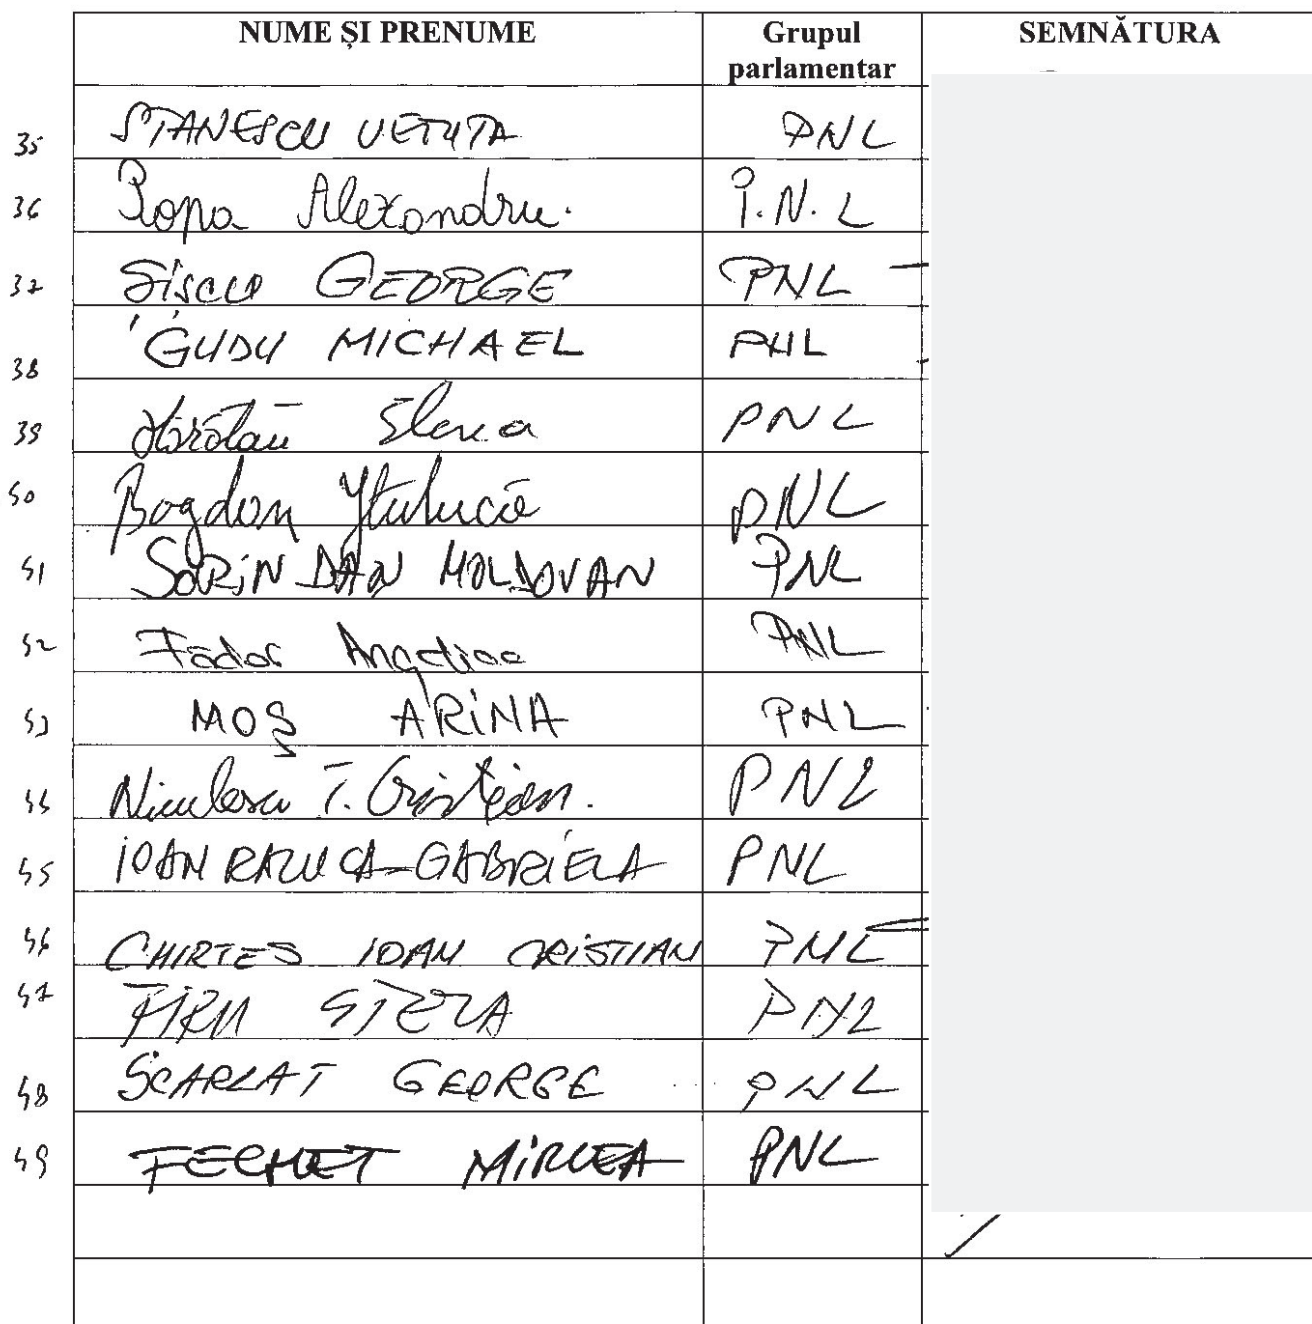 NUME ȘI PRENUME Grupul parlamentar SEMNĂTURA
35 STANESCU VETUTA PNL
36 Popa Alexandru. P.N.L
37 Siscu GEORGE PNL
38 GUDU MICHAEL PNL
39 Hărătău Elena PNL
40 Bogdan PNL
41 SORIN DAN MOLDOVAN PNL
42 Fădor Angelica PNL
43 MOȘ ARINA PNL
44 Niculescu T. Cristian. PNL
45 IOAN RALUCA-GABRIELA PNL
46 CHIRTES IOAN CRISTIAN PNL
47 FIRU STELA PNL
48 SCARLAT GEORGE PNL
49 FECHET MIRCEA PNL